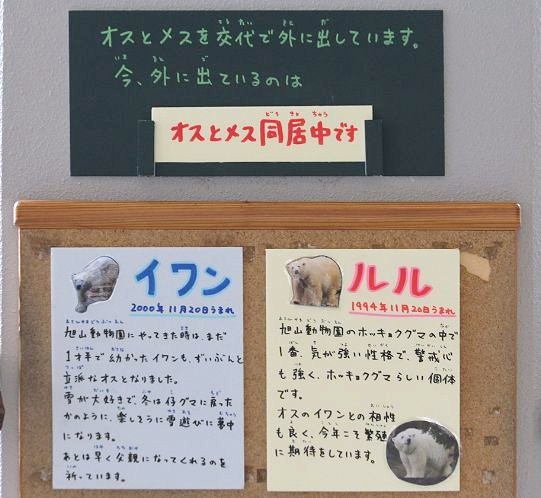 オスとメスを交代で外に出しています。
今、外に出ているのは
オスとメス同居中です
イワン
2000年11月20日うまれ
旭山動物園にやってきた時は、まだ
1才半で幼かったイワンも、ずいぶんと
立派なオスとなりました。
雪が大好きで、冬は仔グマに戻った
かのように、楽しそうに雪遊びに夢中
になります。
あとは早く父親になってくれるのを
祈っています。
ルル
1994年11月20日うまれ
旭山動物園のホッキョクグマの中で
1番、気が強い性格で、警戒心
も強く、ホッキョクグマらしい個体
です。
オスのイワンとの相性
も良く、今年こそ繁殖
に期待をしています。